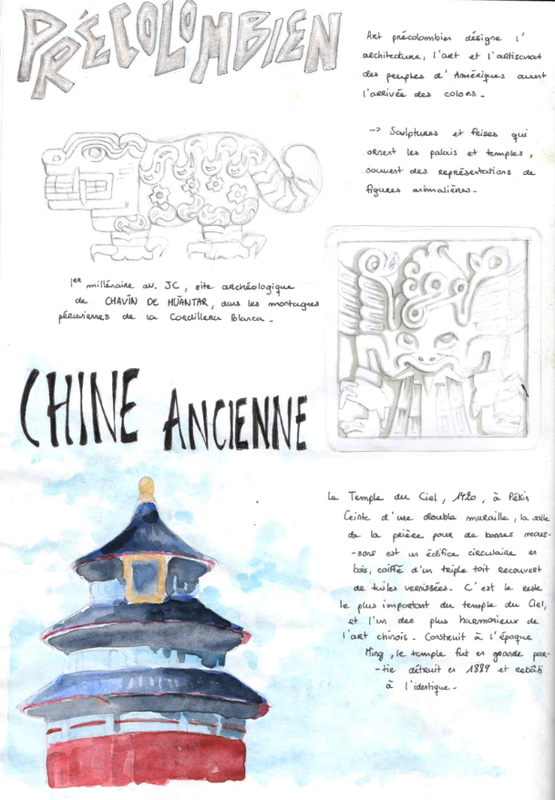 PRÉCOLOMBIEN
Art précolombien désigne l'
architecture, l'art et l'artisanat
des peuples d'Amériques avant
l'arrivée des colons.
-> Sculptures et frises qui
ornent les palais et temples,
souvent des représentations de
figures animalières.
1er millénaire av. JC, site archéologique
de CHAVÍN DE HUÁNTAR, dans les montagnes
péruviennes de la Cordillera Blanca.
CHINE ANCIENNE
Le Temple du Ciel, 1420, à Pékin
Ceinte d'une double muraille, la salle
de la prière pour de bonnes mois-
-sons est un édifice circulaire en
bois, coiffé d'un triple toit recouvert
de tuiles vernissées. C'est le reste
le plus important du temple du Ciel,
et l'un des plus harmonieux de
l'art chinois. Construit à l'époque
Ming, le temple fut en grande par-
-tie détruit en 1889 et rebâti
à l'identique.